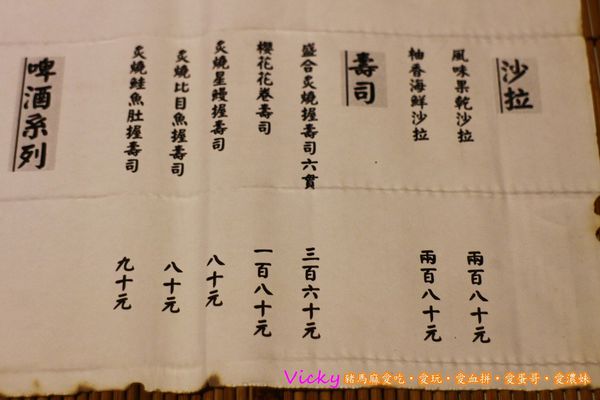 沙拉
風味果乾沙拉 兩百八十元
柚香海鮮沙拉 兩百八十元
壽司
盛合炙燒握壽司六貫 三百六十元
櫻花花卷壽司 一百八十元
炙燒星鰻握壽司 八十元
炙燒比目魚握壽司 八十元
炙燒鮭魚肚握壽司 九十元
啤酒系列
Vicky 豬馬麻愛吃・愛玩・愛血拼・愛蛋哥・愛濃妹